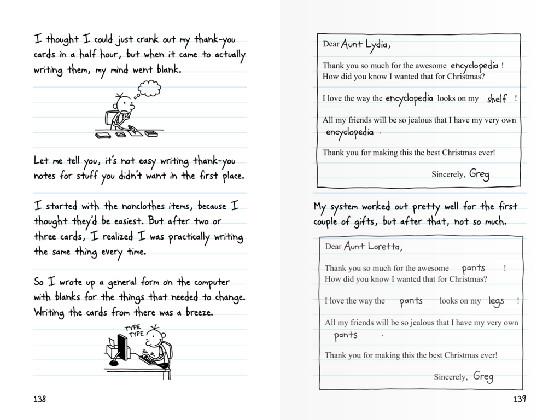 I thought I could just crank out my thank-you
cards in a half hour, but when it came to actually
writing them, my mind went blank.
Let me tell you, it's not easy writing thank-you
notes for stuff you didn't want in the first place.
I started with the nonclothes items, because I
thought they'd be easiest. But after two or
three cards, I realized I was practically writing
the same thing every time.
So I wrote up a general form on the computer
with blanks for the things that needed to change.
Writing the cards from there was a breeze.
TYPE
TYPE
138
Dear Aunt Lydia,
Thank you so much for the awesome encyclopedia !
How did you know I wanted that for Christmas?
I love the way the encyclopedia looks on my shelf !
All my friends will be so jealous that I have my very own
encyclopedia .
Thank you for making this the best Christmas ever!
Sincerely, Greg
My system worked out pretty well for the first
couple of gifts, but after that, not so much.
Dear Aunt Loretta,
Thank you so much for the awesome pants !
How did you know I wanted that for Christmas?
I love the way the pants looks on my legs !
All my friends will be so jealous that I have my very own
pants .
Thank you for making this the best Christmas ever!
Sincerely, Greg
139